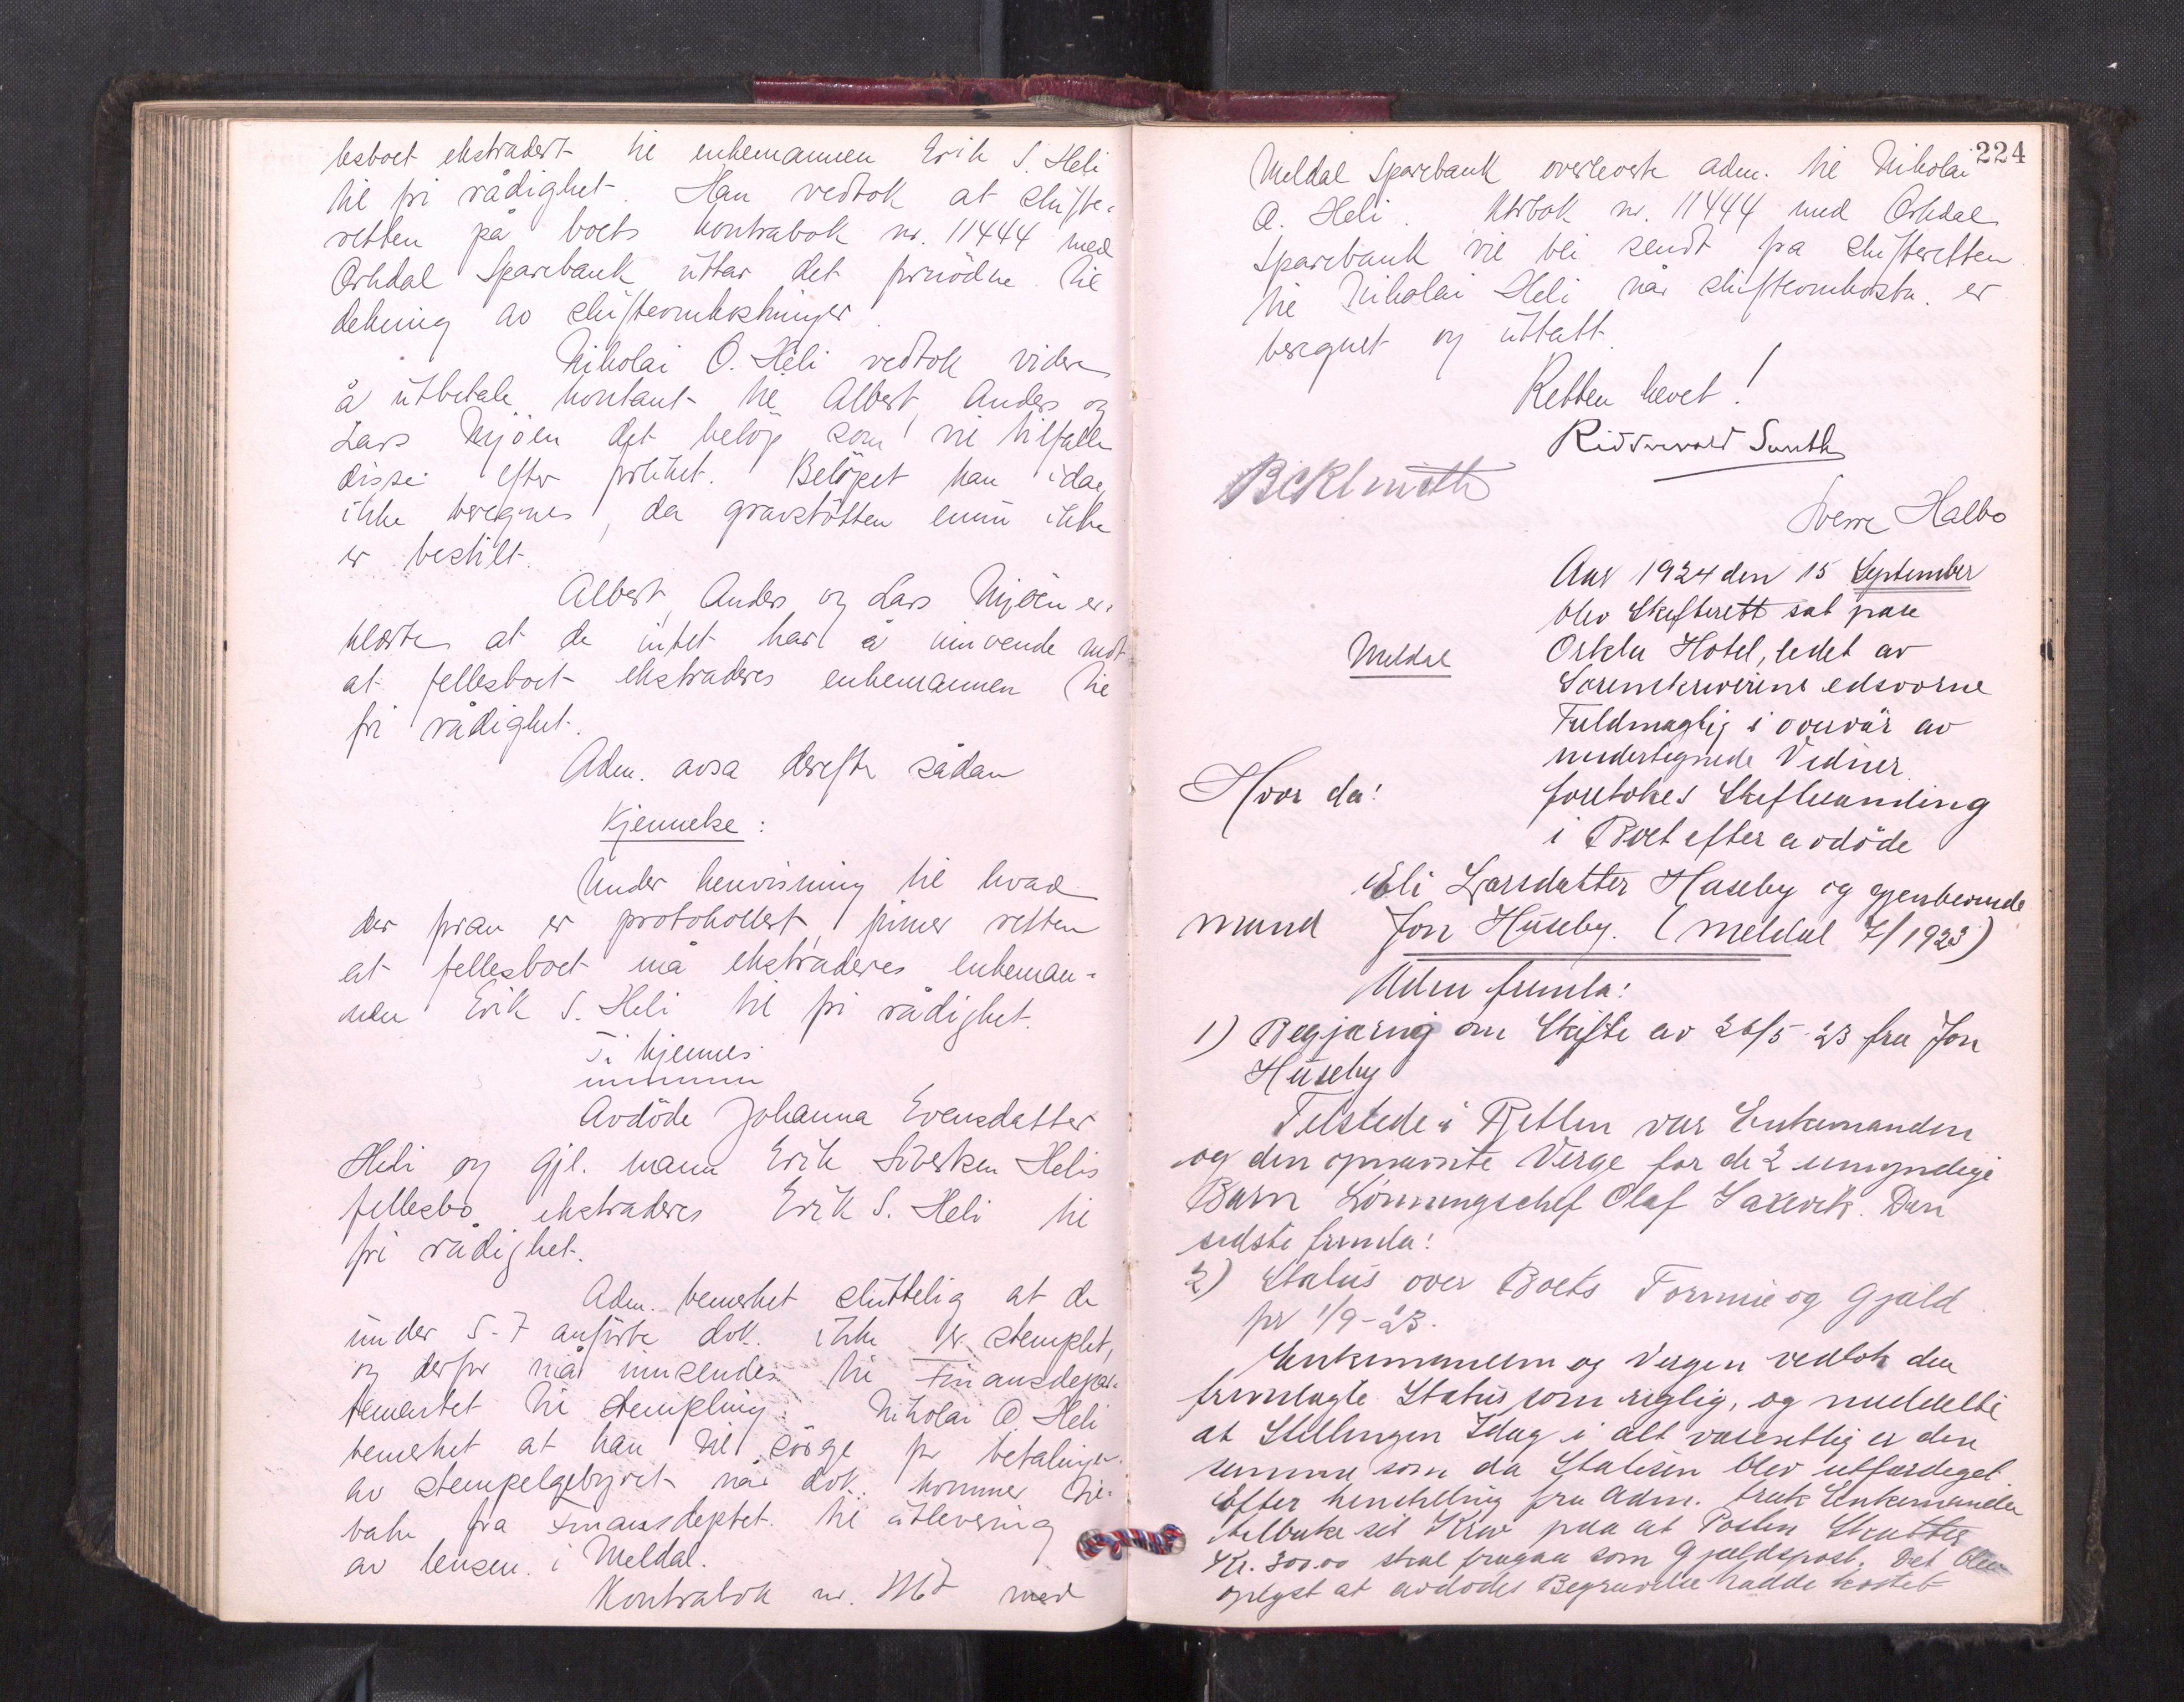 lesboet ekstradert til enkemannen Erik S. Heli
til fri rådighet. Han vedtok at skifte-
retten på boets kontrabok nr. 11444 med
Orkdal Sparebank uttar det fornödne til
dekning av skifteomkostninger.
Nikolai O. Heli vedtok videre
å utbetale kontant til Albert, Anders og
Lars Mjöen det belöp som vil tilfalle
disse efter forliket. Belöpet kan idag
ikke beregnes, da gravstötten ennu ikke
er bestilt.
Albert, Anders og Lars Mjöen er-
klærte at de intet har å innvende mot
at fellesboet ekstraderes enkemannen til
fri rådighet.
Adm. avsa derefter sådan
Kjennelse:
Under henvisning til hvad
der foran er protokollert finner retten
at fellesboet må ekstraderes enkeman-
nen Erik S. Heli til fri rådighet.
Ti kjennes
Avdöde Johanna Evensdatter
Heli og gjl. mann Erik Sivertsen Helis
fellesbo ekstraderes Erik S. Heli til
fri rådighet.
Adm. bemerket sluttelig at de
under 5-7 anförte dok. ikke er stemplet,
og derfor må innsendes til Finansdepar-
tementet til stempling. Nikolai O. Heli
bemerket at han vil sörge for betalingen
av stempelgebyret når dok. kommer til-
bake fra Finansdeptet. til utlevering
av lensm. i Meldal.
Kontrabok nr. med
224
Meldal Sparebank overleverte adm. til Nikolai
O. Heli. Ktrbok nr. 11444 med Orkdal
Sparebank vil bli sendt fra skifteretten
til Nikolai Heli når skifteomkostn. er
beregnet og uttatt.
Retten hevet!
Smith
Sverre Halbo
Aar 1924 den 15 September
blev Skifterett sat paa
Meldal
Orkla Hotel, ledet av
Sorenskriverens edsvorne
Fuldmægtig i overvär av
undertegnede Vidner.
Hvor da!
foretokes Skiftesamling
i Boet efter avdöde
Eli Larsdatter Huseby og gjenlevende
mand Jon Huseby. (Meldal 7/1923)
Adm fremla:
1) Begjæring om Skifte av 26/5-23 fra Jon
Huseby
Tilstede i Retten var Enkemanden
og den opnævnte Verge for de 2 umyndige
Barn Lönningschef Olaf Saxevik. Den
sidste fremla:
2) Status over Boets Formue og Gjæld
pr 1/9-23.
Enkemannen og Vergen vedtok den
fremlagte Status som rigtig, og meddelte
at Stillingen Idag i alt væsentlig er den
samme som da Statusen blev utfærdiget.
Efter henstilling fra Adm. trak Enkemanden
tilbake sit Krav paa at Posten Skatter
Kr. 300.00 skal fragaa som Gjældspost. Det blev
oplyst at avdödes Begravelse hadde kostet